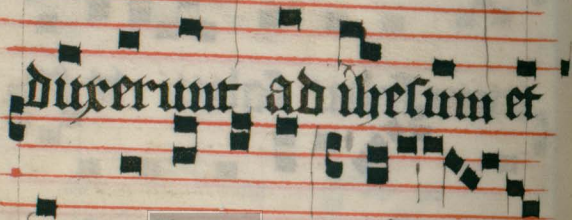 duxerunt ad ihesum et